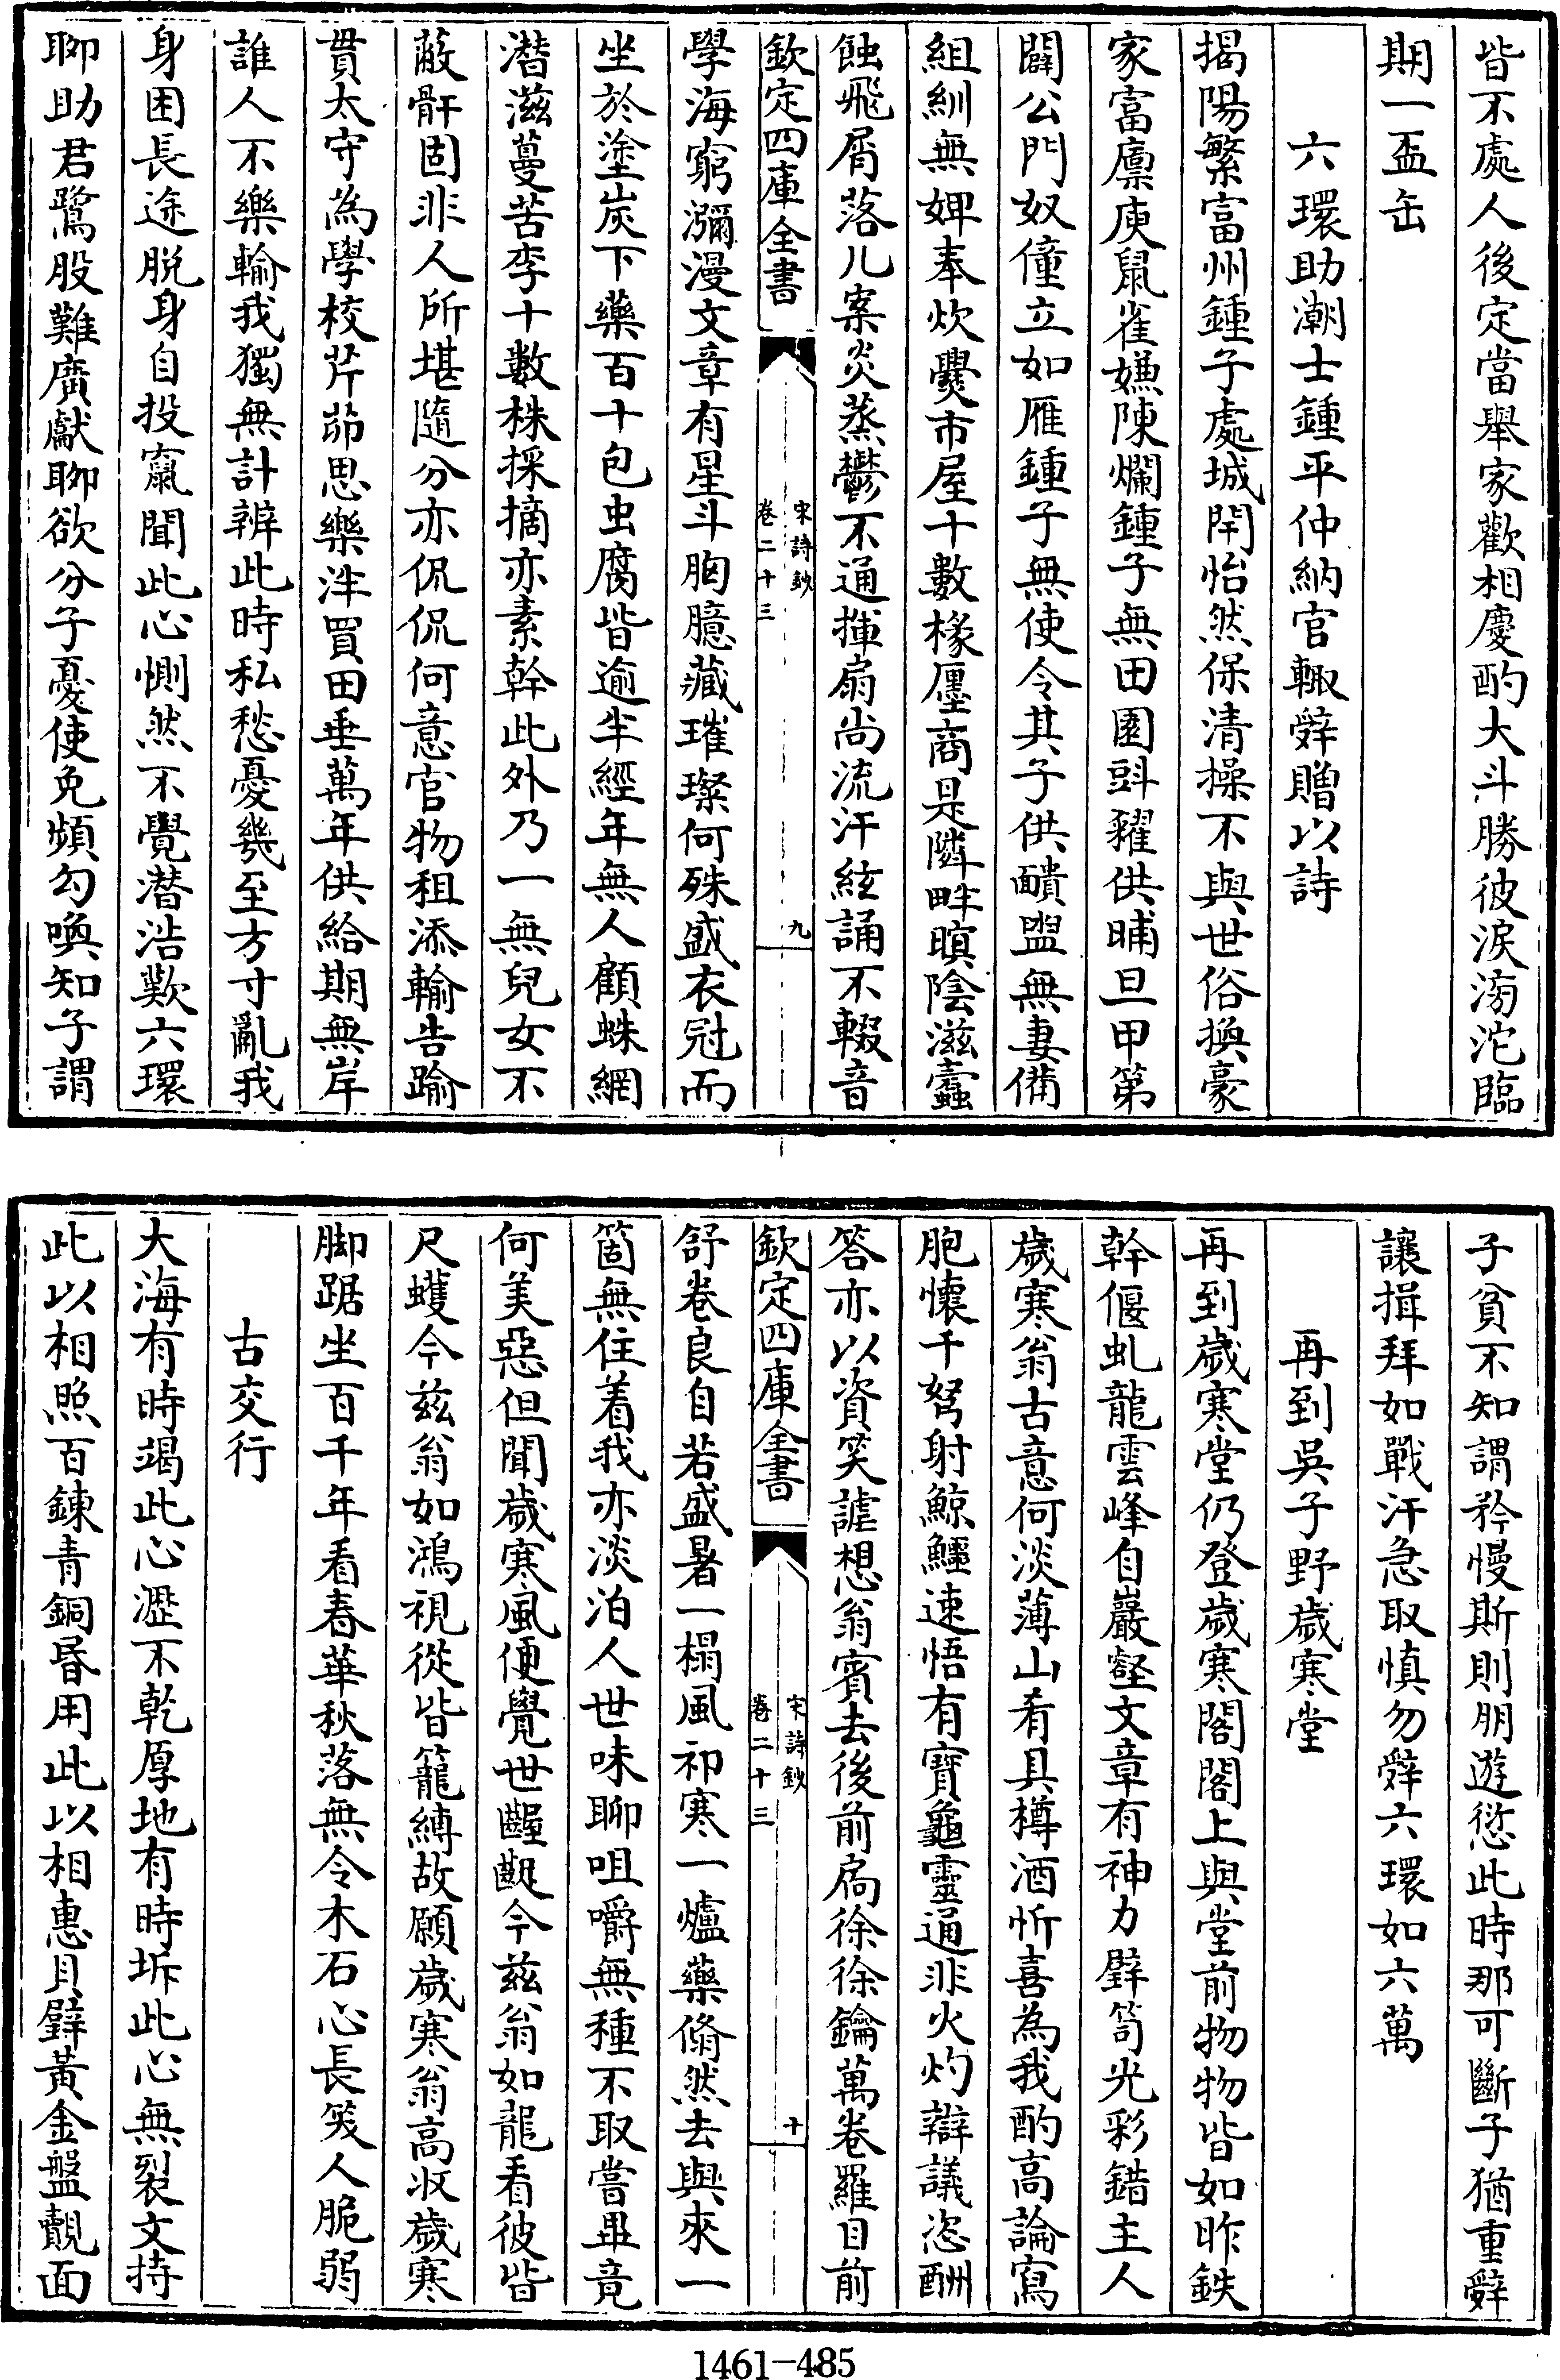 皆不處人後定當舉家歡相慶酌大斗勝彼涙滂沱臨
期一盃缶
六環助潮士鍾平仲納官輙辭贈以詩
揭陽繁富州鍾子處城閈怡然保清操不與世俗換豪
家富廪庾鼠雀嫌陳爛鍾子無田園斟糴供晡旦甲第
闢公門奴僮立如雁鍾子無使令其子供靧盥無妻備
組紃無婢奉炊爨市屋十數椽廛商是隣畔暝陰滋蠧
蝕飛屑落几案炎蒸鬱不通揮扇尚流汗絃誦不輟音
欽定四庫全書
宋詩鈔
卷二十三
九
學海窮瀰漫文章有星斗胸臆藏璀璨何殊盛衣冠而
坐於塗炭下藥百十包虫腐皆逾半經年無人顧蛛網
潛滋蔓苦李十數株採摘亦素幹此外乃一無兒女不
蔽骭固非人所堪隨分亦侃侃何意官物租添輸告踰
貫太守為學校芹茆思樂泮買田垂萬年供給期無岸
誰人不樂輸我獨無計辦此時私愁憂幾至方寸亂我
身困長途脱身自投竄聞此心惻然不覺潛浩歎六環
聊助君鷺股難廣獻聊欲分子憂使免頻勾喚知子謂
子貧不知謂矜慢斯則朋遊愆此時那可斷子猶重辭
讓揖拜如戰汗急取慎勿辭六環如六萬
再到吳子野歲寒堂
再到歲寒堂仍登歲寒閣閣上與堂前物物皆如昨鉄
幹偃虬龍雲峰自巖壑文章有神力壁笥光彩錯主人
歲寒翁古意何淡薄山肴具樽酒忻喜為我酌高論寫
胞懷千弩射鯨鱷速悟有寶龜靈通非火灼辯議恣酬
答亦以資笑謔想翁賓去後前扃徐徐鑰萬卷羅目前
欽定四庫全書
宋詩鈔
卷二十三
十
舒卷良自若盛暑一榻風祁寒一爐藥翛然去與來一
箇無住着我亦淡泊人世味聊咀嚼無種不取嘗畢竟
何美惡但聞歲寒風便覺世齷齪今兹翁如龍看彼皆
尺蠖今兹翁如鴻視從皆籠縛故願歲寒翁高收歲寒
脚踞坐百千年看春華秋落無令木石心長笑人脆弱
古交行
大海有時竭此心瀝不乾厚地有時坼此心無裂文持
此以相照百鍊青銅昏用此以相惠貝璧黄金盤覿面
1461—485